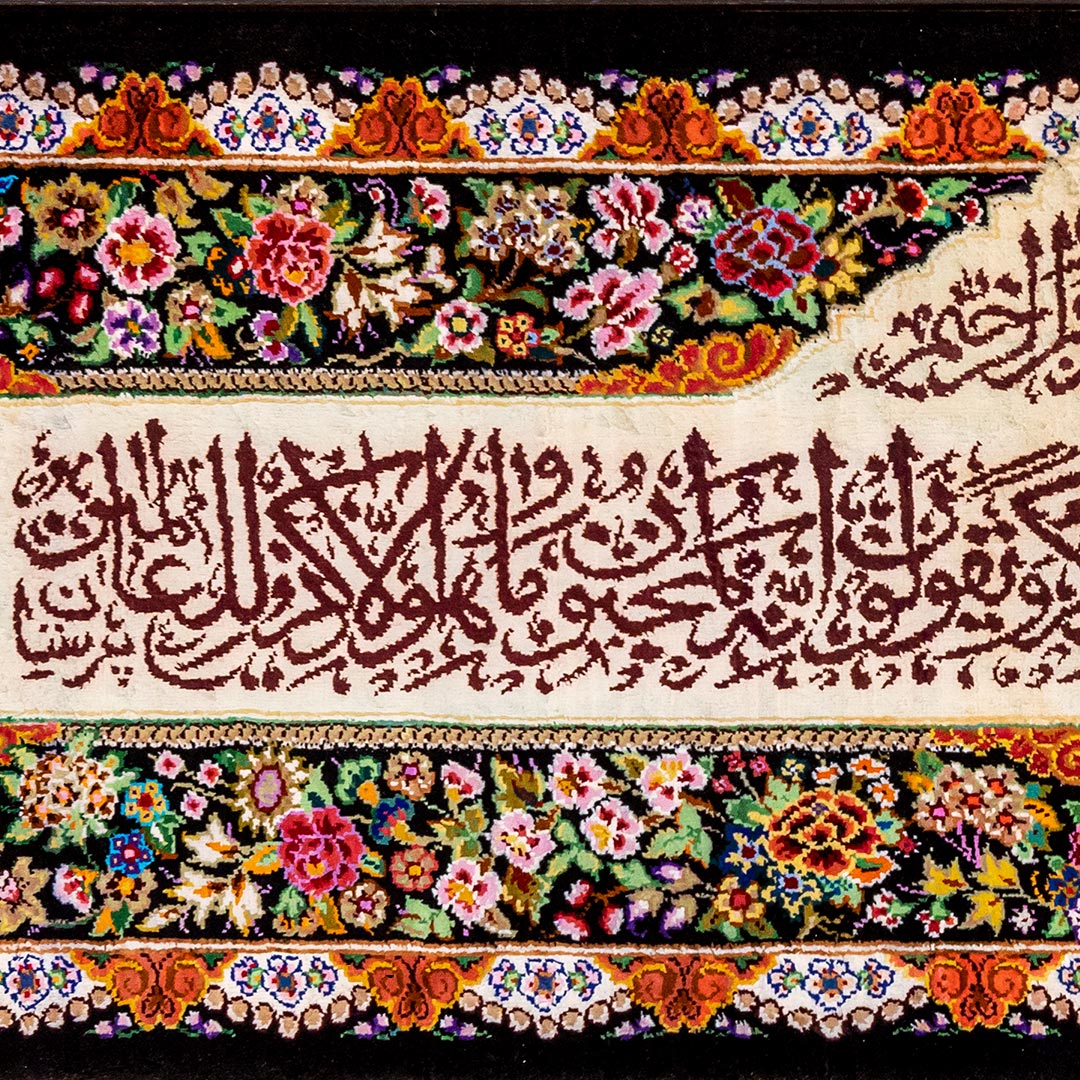 الرحيم
ويقولون إنه لمجنون وما هو إلا ذكر للعالمين